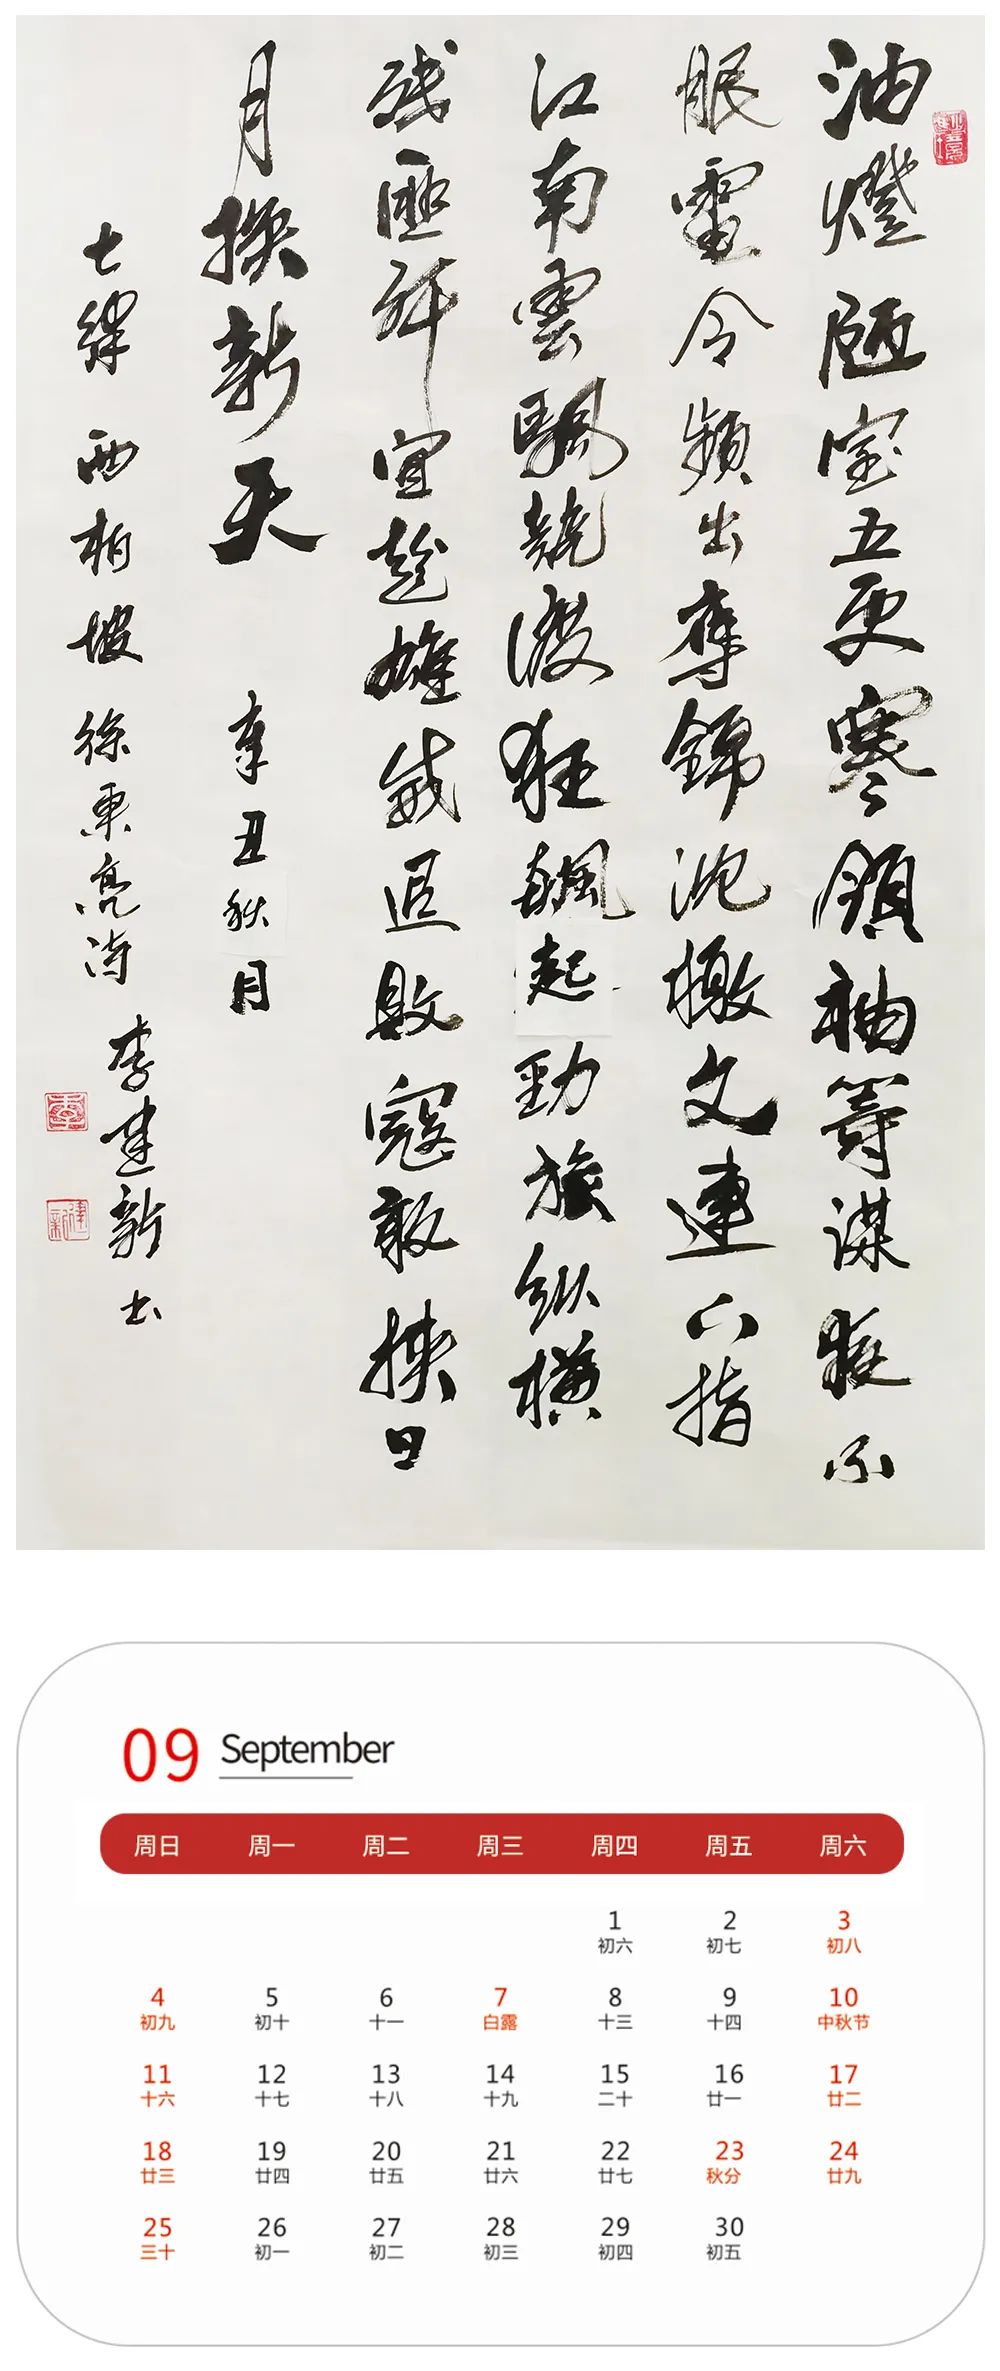 油燈陋室五更寒領袖籌謀夜不
眠電令頻出奪錦沈檄文連下指
江南雲颿競渡狂飆起勁旅纵橫
殘匪歼宜趁雄威追敗寇敢挟日
月換新天 辛丑秋月
七律 西柏坡 徐東亮诗 李建新书
09 September
周日 周一 周二 周三 周四 周五 周六
1 2 3
初六 初七 初八
4 5 6 7 8 9 10
初九 初十 十一 白露 十三 十四 中秋节
11 12 13 14 15 16 17
十六 十七 十八 十九 二十 廿一 廿二
18 19 20 21 22 23 24
廿三 廿四 廿五 廿六 廿七 秋分 廿九
25 26 27 28 29 30
三十 初一 初二 初三 初四 初五